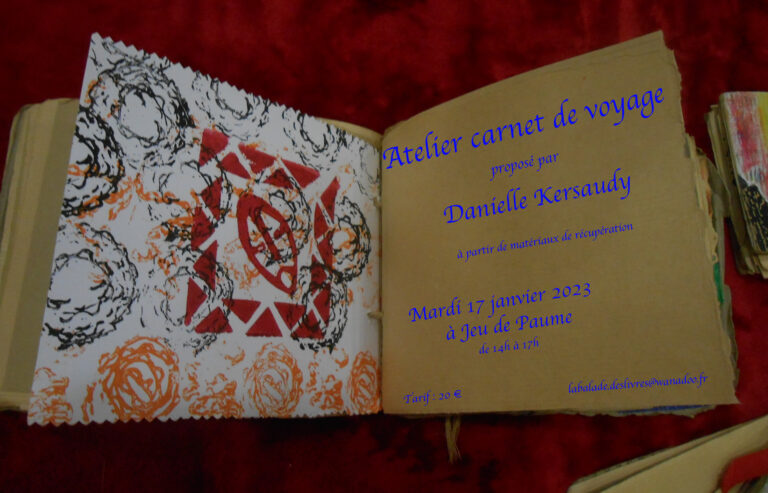 Atelier carnet de voyage
proposé par
Danielle Kersaudy
à partir de matériaux de récupération
Mardi 17 janvier 2023
à Jeu de Paume
de 14h à 17h
Tarif : 20 €
labalade.deslivres@wanadoo.fr